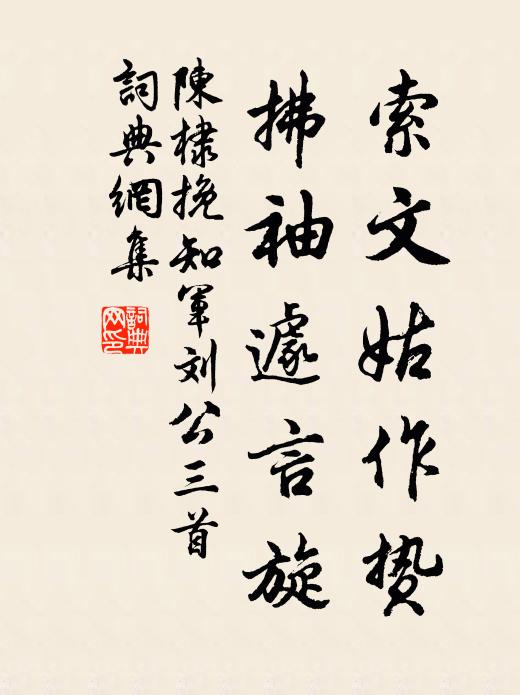 索文姑作贽
拂袖遽言旋
陳棣挽知軍刘公三首
詞典網集
詞典网印